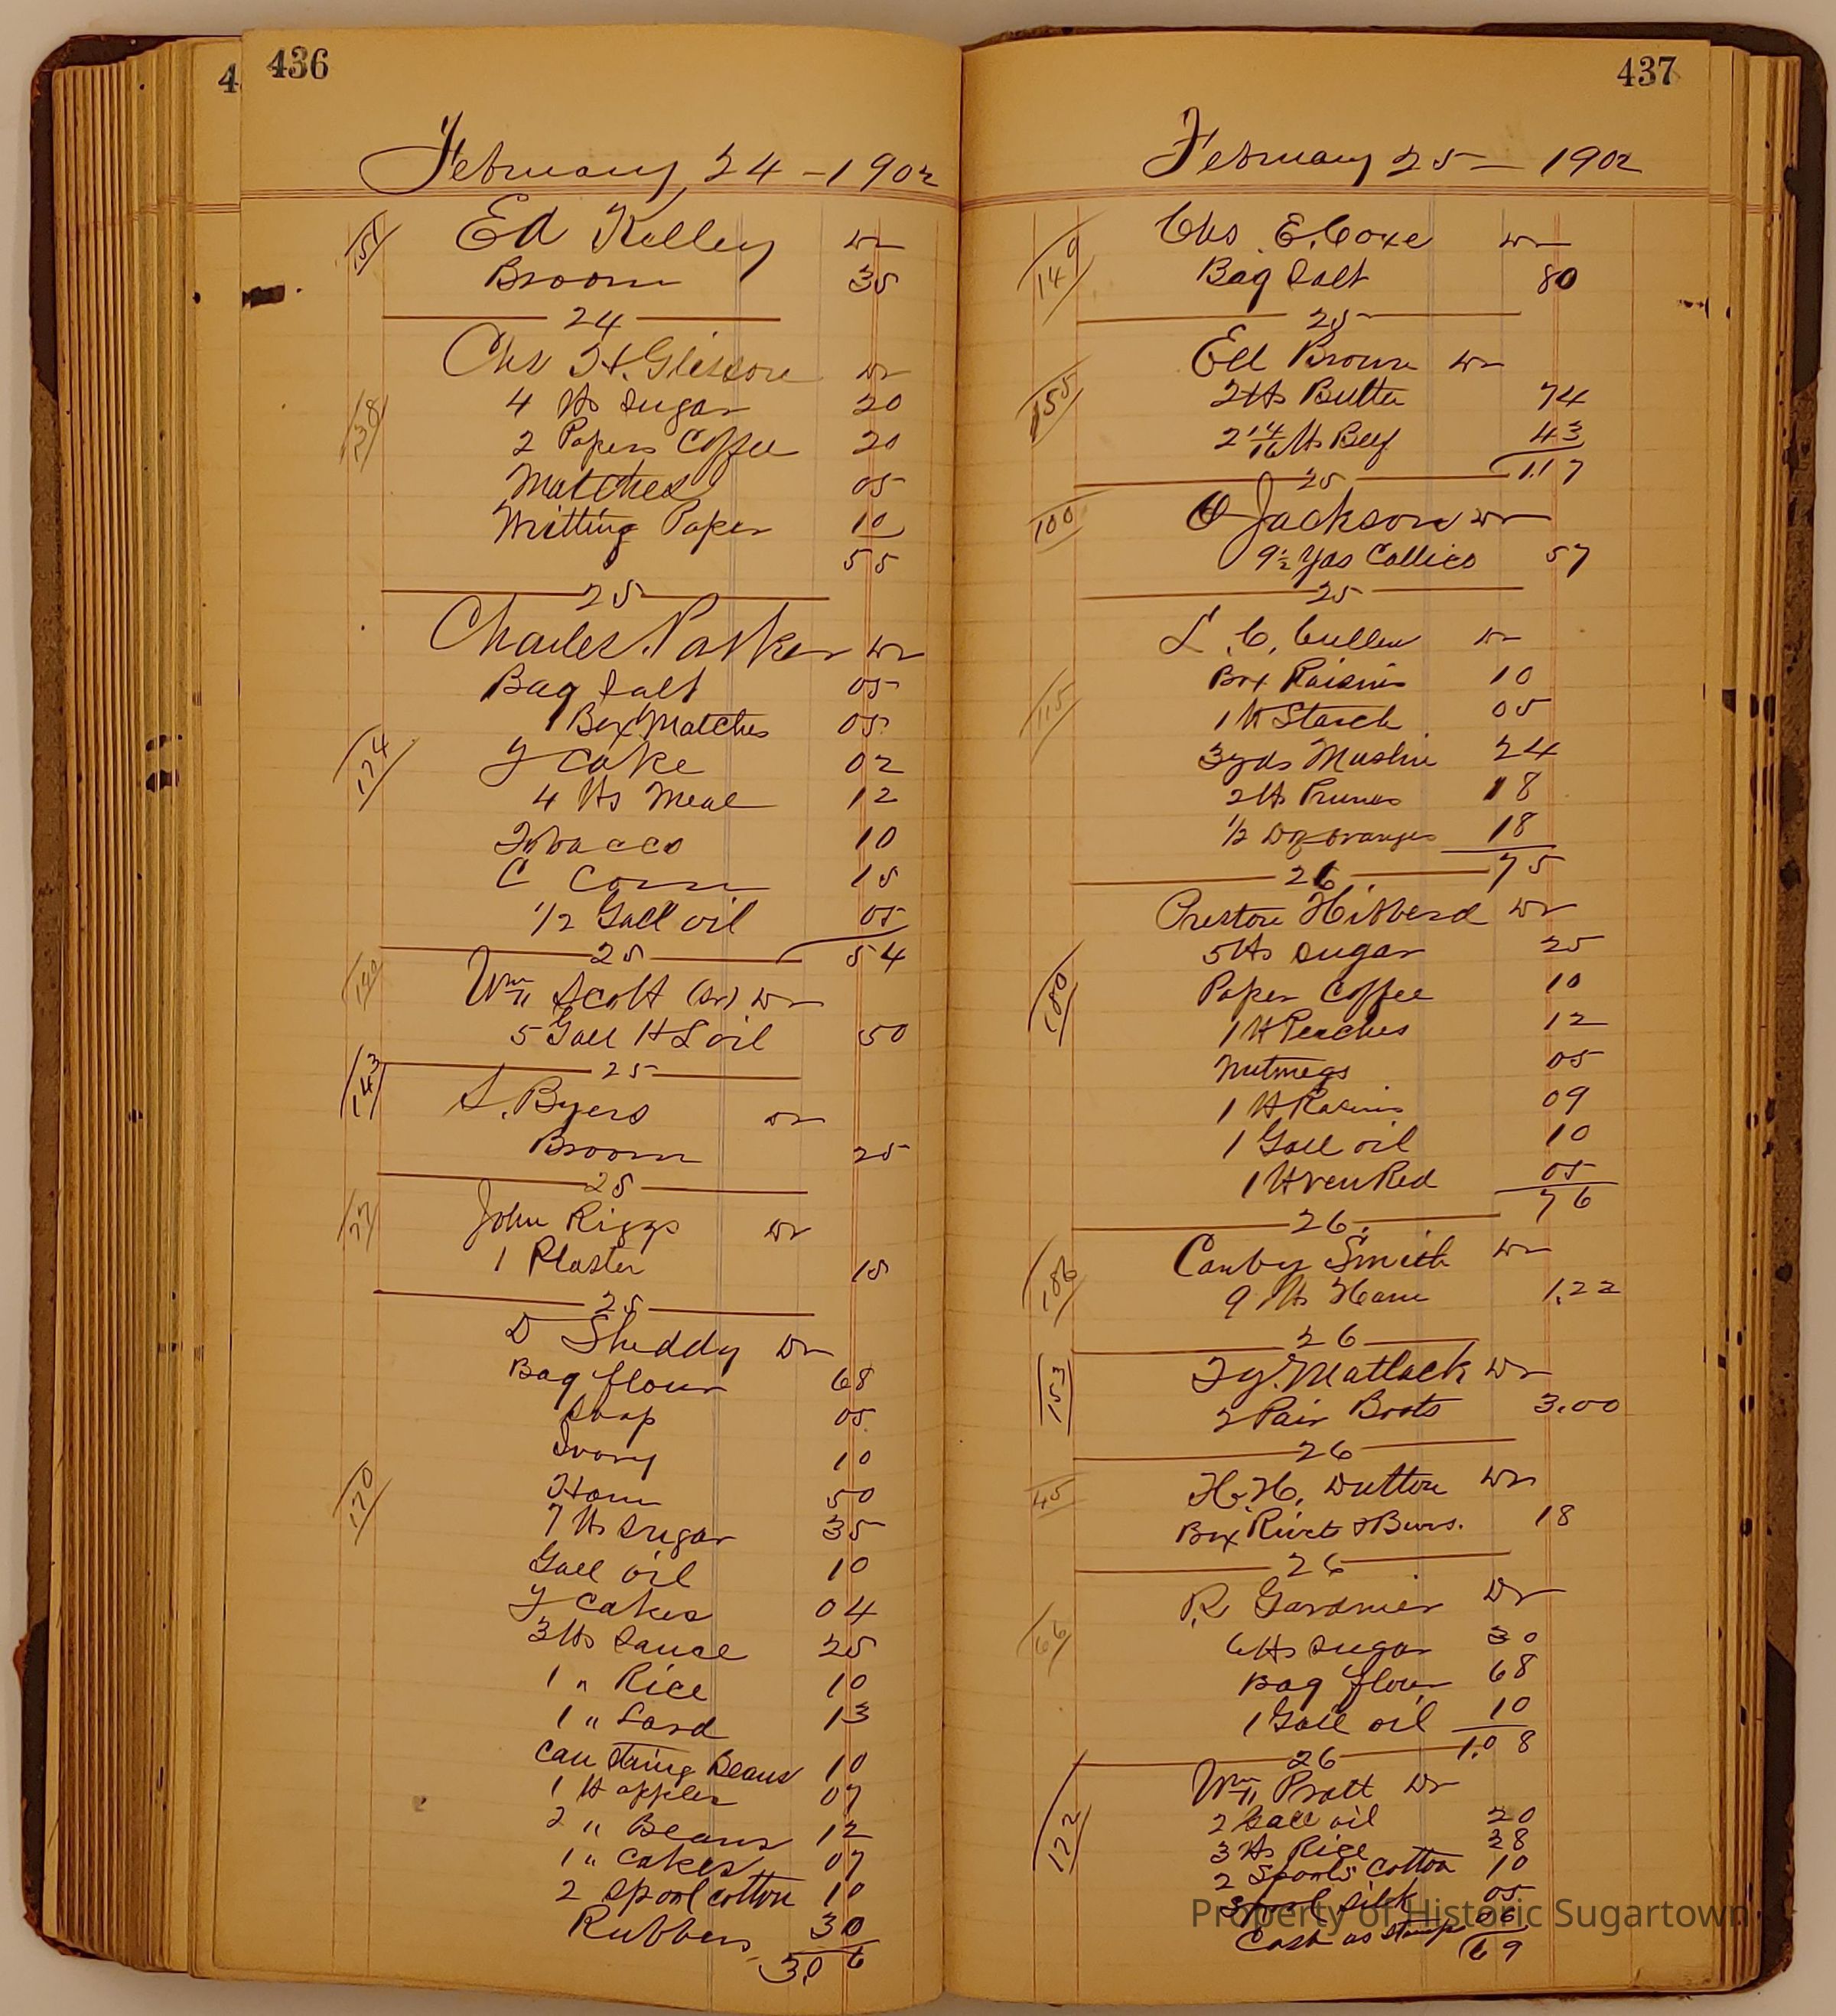 4
436
February, 24 - 1902
151
Ed Kelley Dr
Broom 35
24
Chs H. Glissore Dr
4 lbs Sugar 20
2 Papers Coffee 20
Matches 05
Writting Paper 10
55
25
Charles Parker Dr
Bag Salt 05
1 Box Matches 05
174
Y Cake 02
4 lbs Meal 12
Tobacco 10
C Corn 15
1/2 Gall oil 05
25 54
Wm Scott (Sr) Dr
5 Gall H L oil 50
143
25
S. Byers Dr
Broom 25
25
77
John Riggs Dr
1 Plaster 15
25
D Sheddy Dr
Bag flour 68
Soap 05
Ivory 10
170
Ham 50
7 lbs Sugar 35
Gall oil 10
Y Cakes 04
3 lbs Sause 25
1 " Rice 10
1 " Lard 13
Can String Beans 10
1 lb apples 07
2 " Beans 12
1 " Cakes 07
2 Spool Cotton 10
Rubbers 30
3.06
437
February 25 - 1902
149
Chs. E. Coxe Dr
Bag Salt 80
25
Ed Brown Dr
155
2 lbs Butter 74
2 14/16 lbs Beef 43
25 1.17
100
O Jackson Dr
9 1/2 Yds Callico 57
25
L. C. Cullen Dr
Box Raisins 10
115
1 lb Starch 05
3 yds Muslin 24
2 lbs Prunes 18
1/2 Doz oranges 18
26 75
Preston Hibberd Dr
5 lbs Sugar 25
180
Paper Coffee 10
1 lb Peaches 12
Nutmegs 05
1 lb Rasins 09
1 Gall oil 10
1 lb Ven Red 05
76
26
186
Canby Smith Dr
9 lbs Ham 1.22
26
153
Ty. Matlack Dr
2 Pair Boots 3.00
26
45
H. H. Dutton Dr
Box Rivets & Burs. 18
26
R. Gardnier Dr
66
6 lbs Sugar 30
Bag flour 68
1 Gall oil 10
26 1.08
Wm Pratt Dr
122
2 Gall oil 20
3 lbs Rice 28
2 Spools Cotton 10
Spool Silk 05
Cash as Stamps 06
69
Property of Historic Sugartown